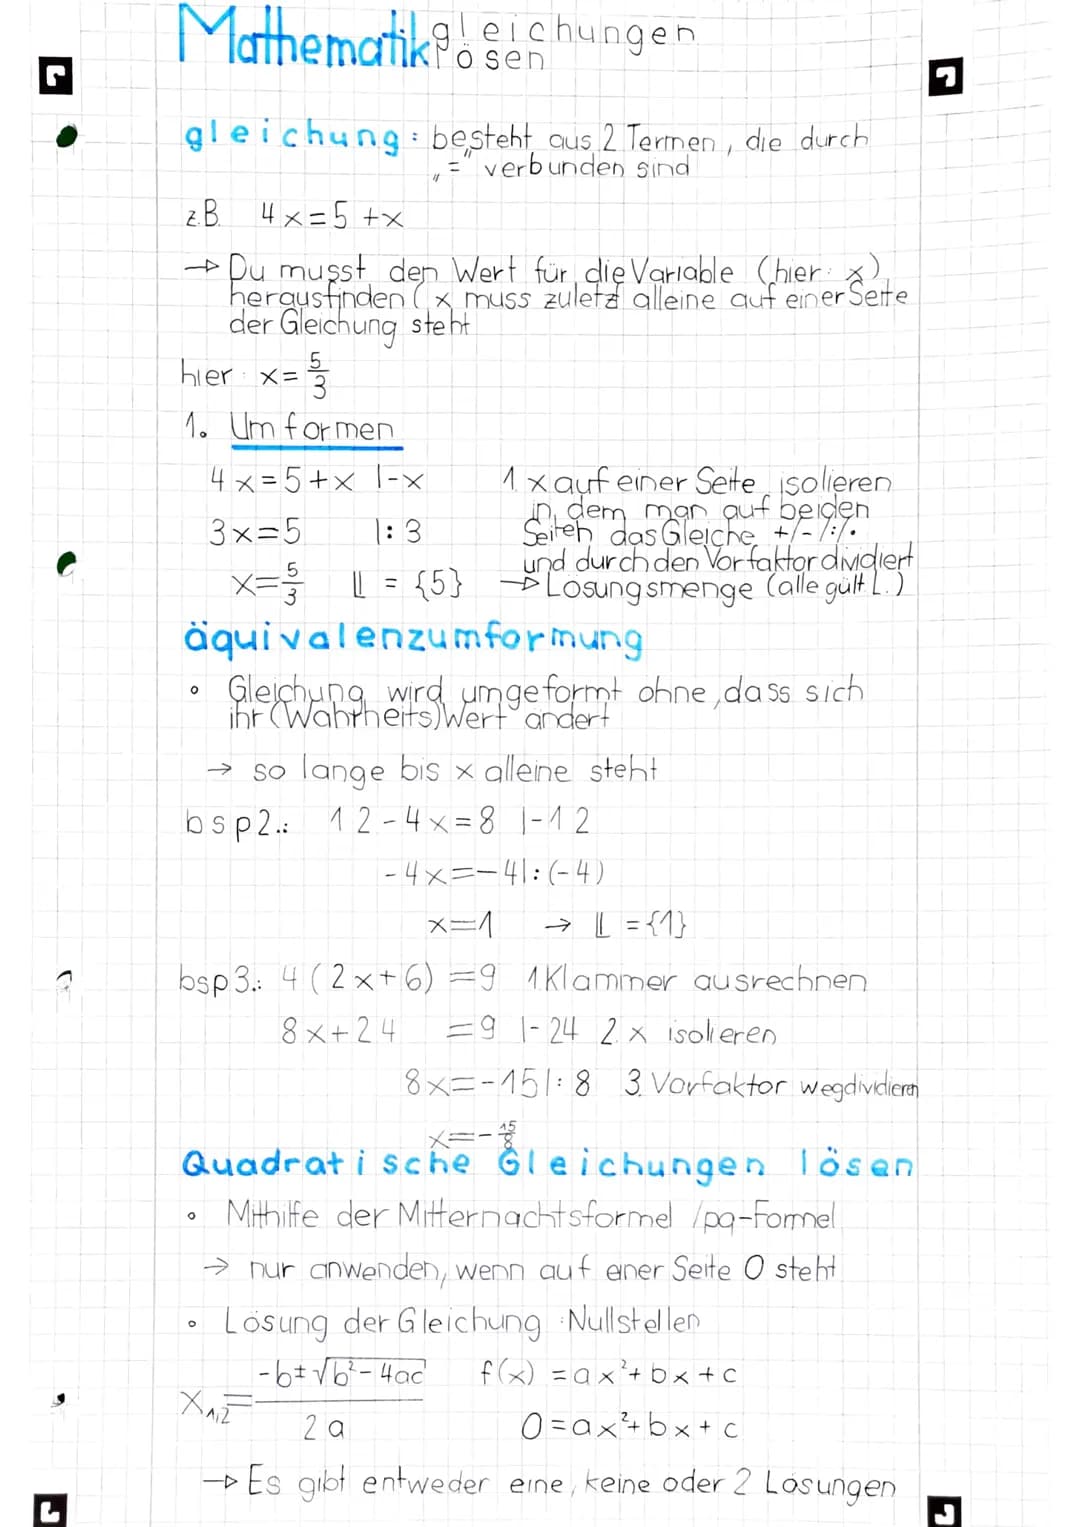 Mathematik gleichungen
lösen
gleichung: besteht aus 2 Termen, die durch
„=" verbunden sind
z.B. 4x=5+x
→ Du musst den Wert für die Variable (hier: x)
herausfinden (x muss zuletzt alleine auf einer Seite
der Gleichung steht
hier: x=5/3
1. Umformen
4x=5+x |-x 1. x auf einer Seite isolieren
in dem man auf beiden
3x=5 |:3 Seiten das Gleiche +/-/:/·
und durch den Vorfaktor dividiert
x=5/3 𝕃 = {5} → Lösungsmenge (alle gült. L.)
äquivalenzumformung
• Gleichung wird umgeformt ohne, dass sich
ihr (Wahrheits)Wert ändert
→ so lange bis x alleine steht
bsp2.: 12-4x=8 |-12
-4x=-4|:(-4)
x=1 → 𝕃={1}
bsp3.: 4(2x+6)=9 1. Klammer ausrechnen
8x+24 =9 |-24 2. x isolieren
8x=-15|:8 3. Vorfaktor wegdividieren
x=-15/8
Quadratische Gleichungen lösen
• Mithilfe der Mitternachtsformel /pq-Formel
→ nur anwenden, wenn auf einer Seite 0 steht
• Lösung der Gleichung: Nullstellen
x₁,₂=(-b±√(b²-4ac))/(2a) f(x)=ax²+bx+c
0=ax²+bx+c
→ Es gibt entweder eine, keine oder 2 Lösungen